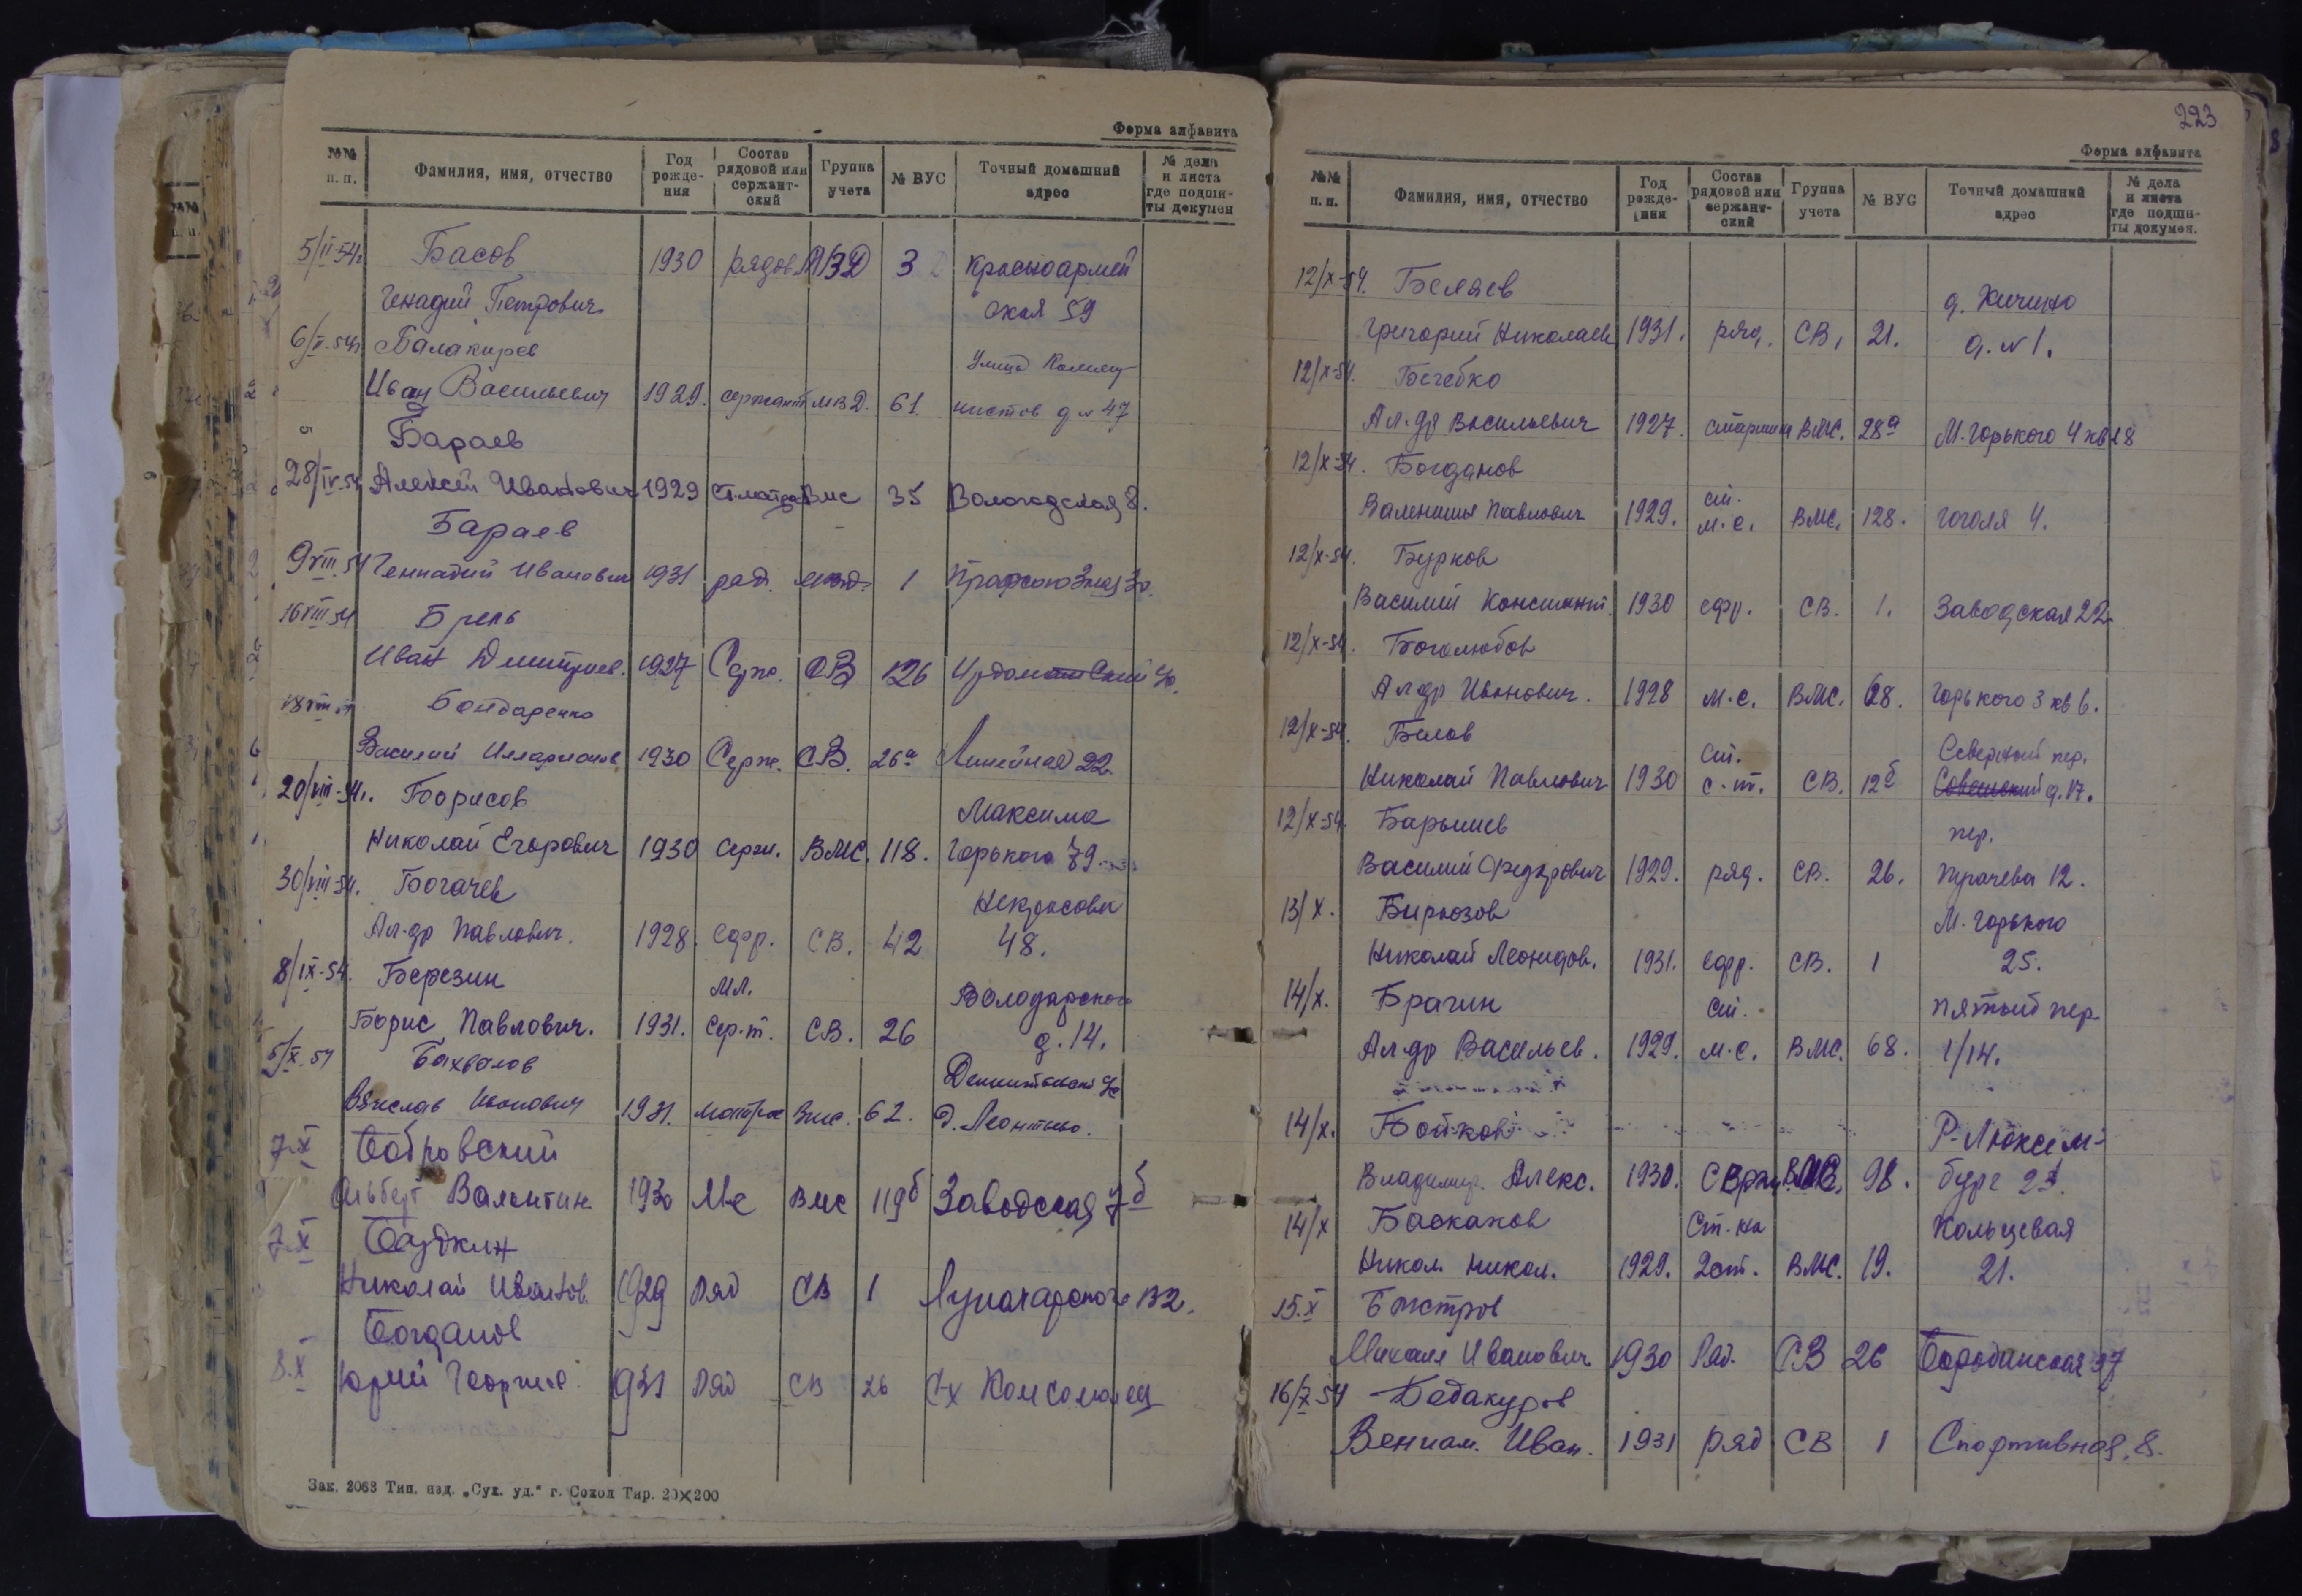 Форма алфавита
№№ п. п. Фамилия, имя, отчество Год рожде-ния Состав рядовой или сержант-ский Группа учета № ВУС Точный домашний адрес № дела и листа где подши-ты докумен
5/II-54г Басов 1930 рядов МВД 3 Красноармей
Генадий Петрович ская 59
6/V-54г Балакирев Улица Коммун-
Иван Васильевич 1929. сержант МВД. 61. нистов д 47
Бараев
28/IV-54 Алексей Иванович 1929 Ст матрос Вмс 35 Вологодская 8.
Бараев
9 VIII 54 Геннадий Иванович 1931 ряд. МВД. 1 Профсоюзная 30.
16 VIII 54 Брель
Иван Дмитриев. 1927 Серж. СВ 126 Урдомский
18 VIII Бондаренко
Василий Илларионов 1930 Серж. СВ. 26а Линейная 22.
20/VIII-54г. Борисов Максима
Николай Егорович 1930 серж. ВМС. 118. Горького 79
30/VIII-54. Богачев Некрасова
Ал-др Павлович. 1928. ефр. СВ. 42 48.
8/IX-54. Березин мл. Володарского
Борис Павлович. 1931. сер-т. СВ. 26 д. 14.
5/X-54 Бахвалов
Вячеслав 1931. матрос Вмс. 62. д. Леонтьево.
7.X Бобровский
Альберт Валентин 1930 Мс Вмс 119б Заводская 7б
7.X
Николай Иванов. 1929 Ряд СВ 1 Луначарского
Богданов
8.X Юрий Георгиев. 1931 Ряд СВ 26 С-х Комсомолец
Зак. 2063 Тип. изд. „Сух. уд." г. Сокол Тир. 20×200
223
Форма алфавита
№№ п. п. Фамилия, имя, отчество Год рожде-ния Состав рядовой или сержант-ский Группа учета № ВУС Точный домашний адрес № дела и листа где подши-ты докумен.
12/X-54. Беляев д. Кичино
Григорий Николаев 1931. ряд. СВ, 21. д. N 1.
12/X-54. Бегебко
Ал-др Васильевич 1927. старшина ВМС. 28а М. Горького 4 кв 28
12/X-54. Богданов ст.
Валентин Павлович 1929. м.с. ВМС. 128. Гоголя 4.
12/X-54. Бурков
Василий Констант. 1930 ефр. СВ. 1. Заводская 22
12/X-54. Боголюбов
Ал-др Иванович. 1928 м.с. ВМС. 68. Горького 3 кв 6.
12/X-54. Белов ст. Северный пер.
Николай Павлович 1930 с-т. СВ. 12б Советский д. 17.
12/X-54. Барышев пер.
Василий Федорович 1929. ряд. СВ. 26. Пугачева 12.
13/X. Бирюзов М. Горького
Николай Леонидов. 1931. ефр. СВ. 1 25.
14/X. Брагин ст. Пятый пер.
Ал-др Васильев. 1929. м.с. ВМС. 68. 1/14.
14/X. Бойков Р-Люксем-
Владимир. Алекс. 1930. Серж. 98. бург
14/X Баскаков Ст-на Кольцевая
Никол. Никол. 1929. 2 ст. ВМС. 19. 21.
15.X Быстров
Михаил Иванович 1930 Ряд. СВ 26 Бородинская 37
16/X 54 Бабакуров
Вениам. Иван. 1931 ряд СВ 1 Спортивная, 8.